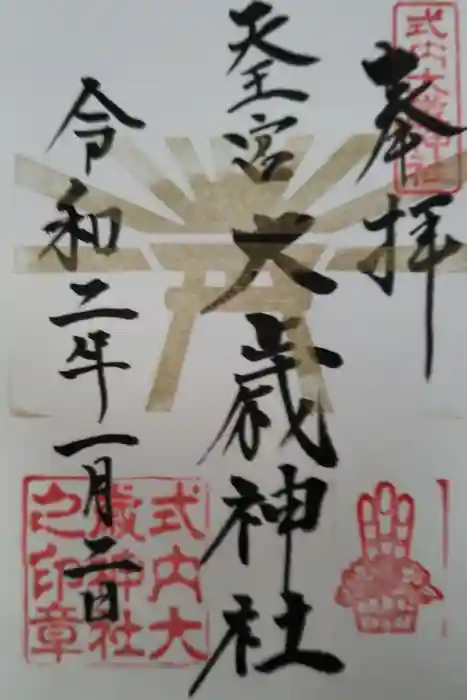 奉拝
式内大歳神社
天王宮
大歳神社
令和二年一月二日
式内大歳神社之印章